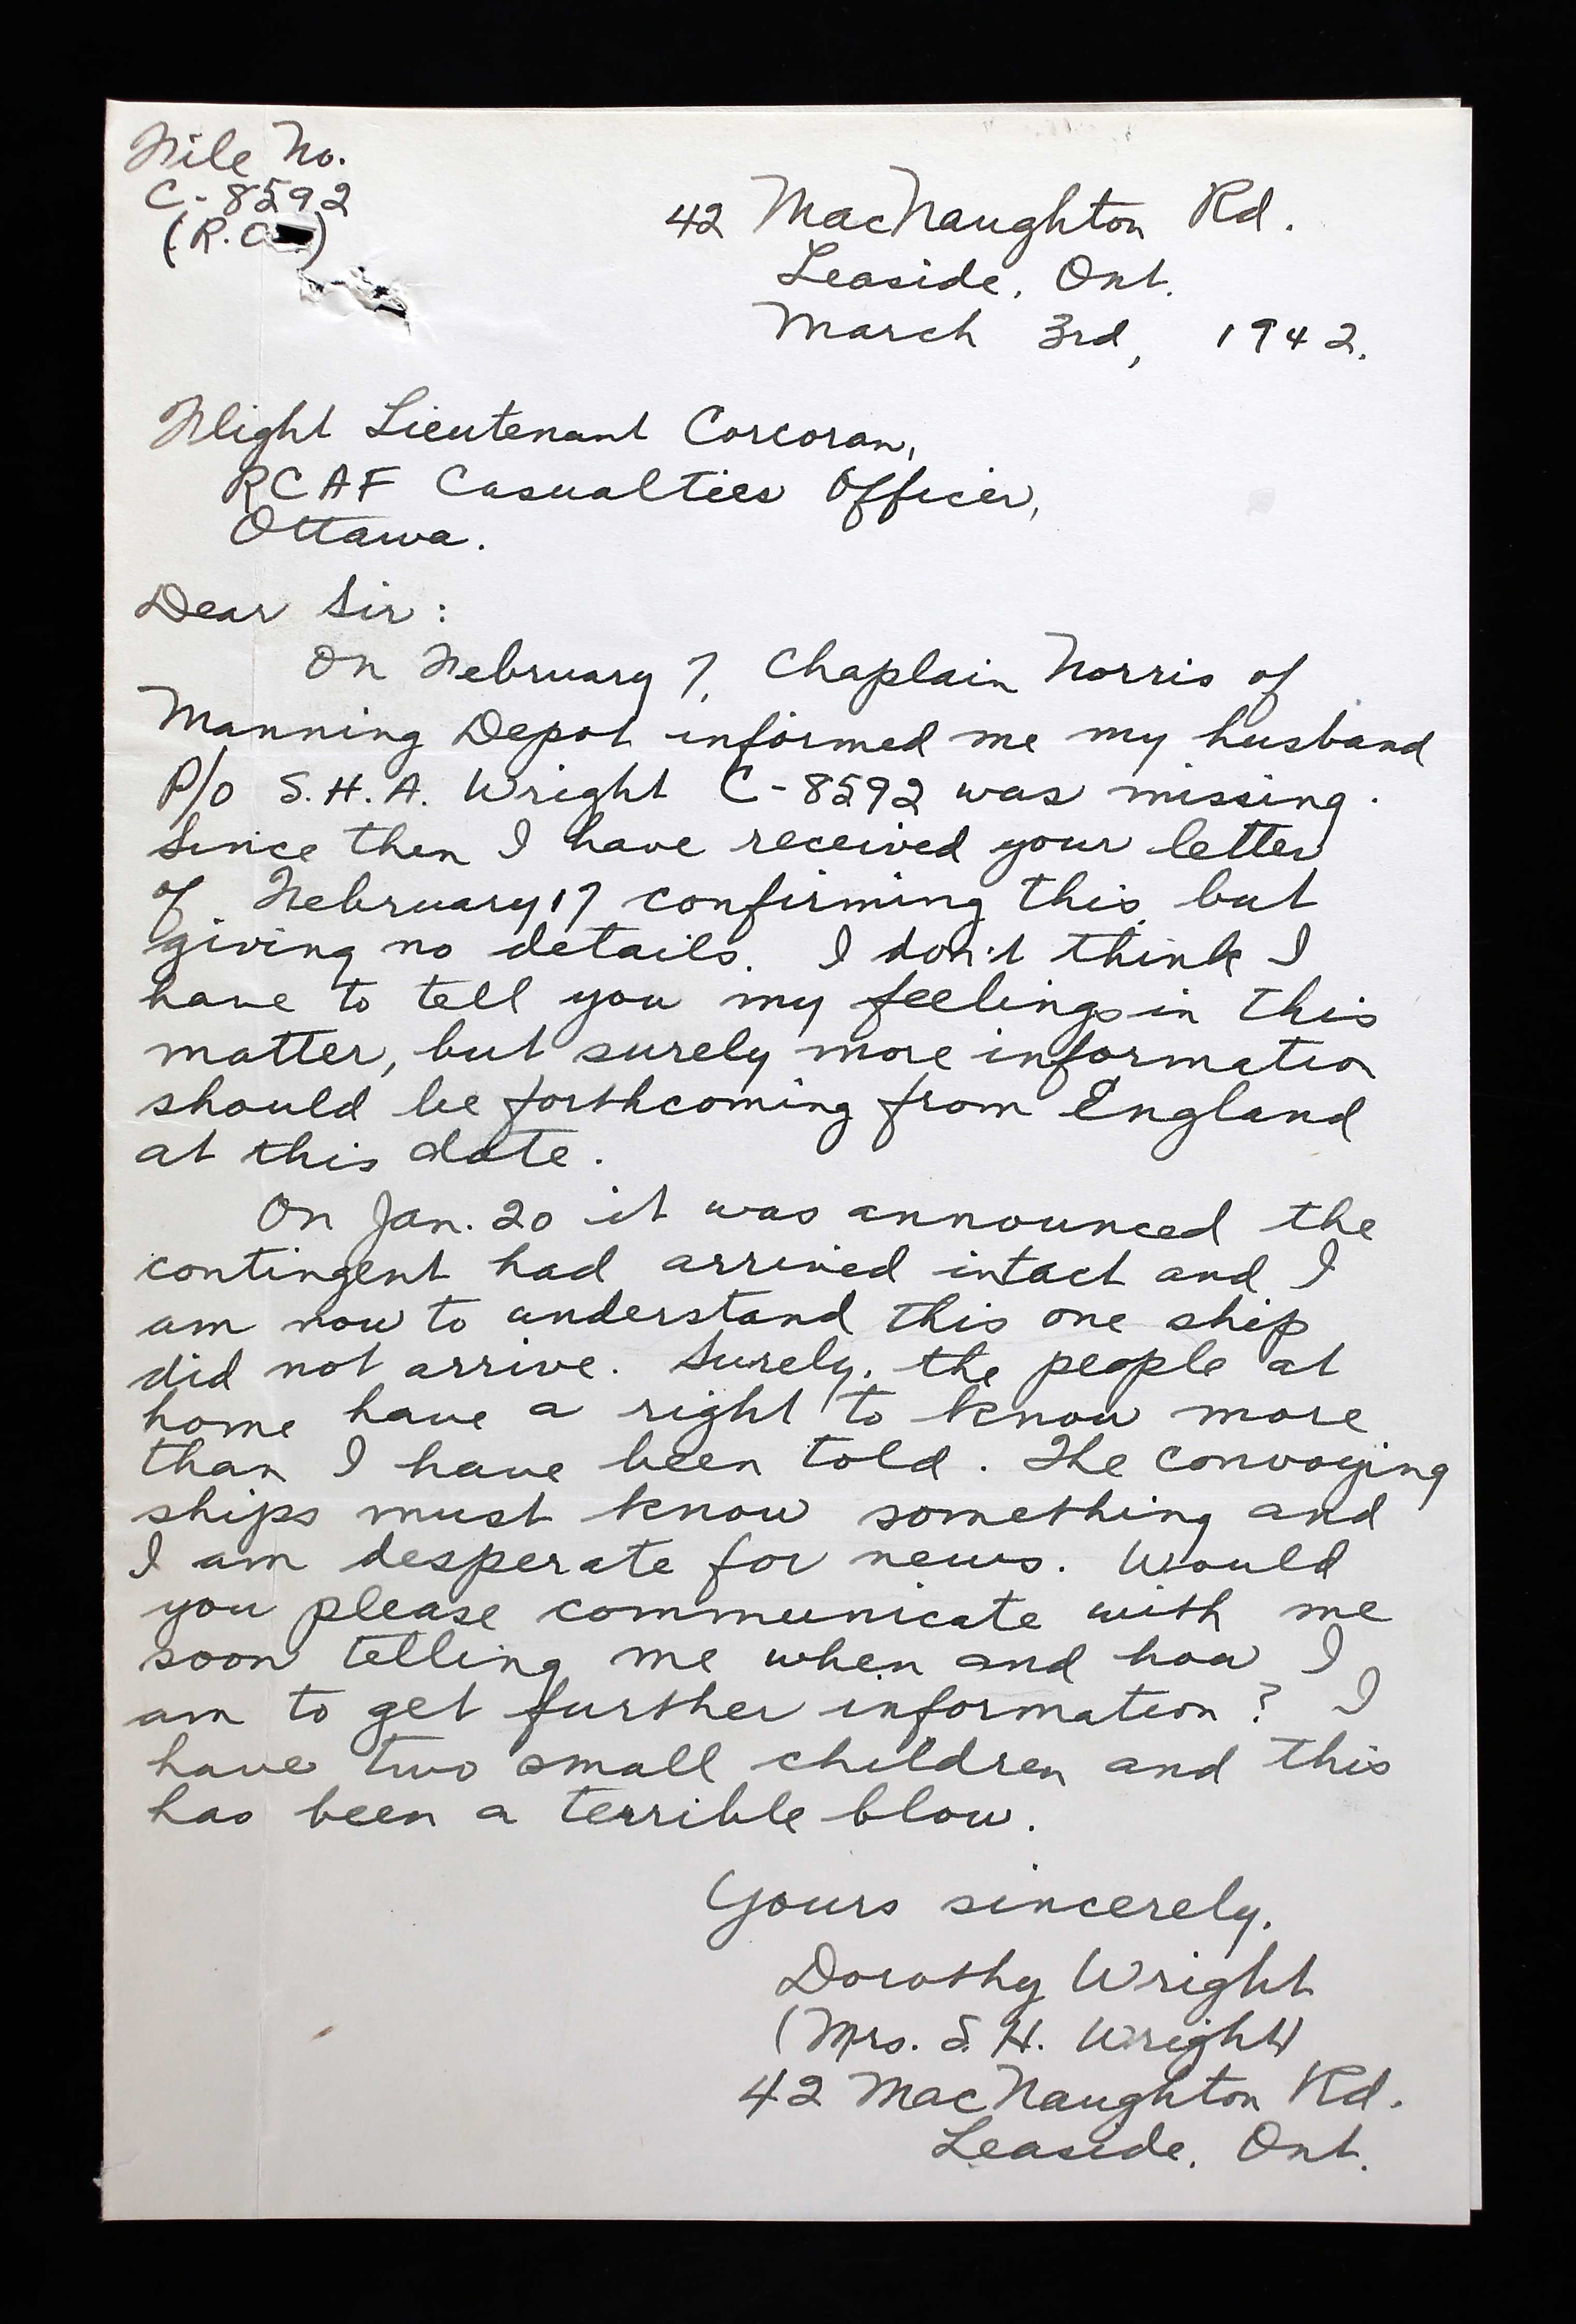 File No.
C-8592
(R.C
42 MacNaughton Rd.
Leaside, Ont.
March 3rd, 1942.
Flight Lieutenant Corcoran,
RCAF Casualties Officer,
Ottawa.
Dear Sir:
On February 7, Chaplain Norris of
Manning Depot informed me my husband
P/O S.H.A. Wright C-8592 was missing.
Since then I have received your letter
of February 17 confirming this but
giving no details. I don't think I
have to tell you my feelings in this
matter, but surely more information
should be forthcoming from England
at this date.
On Jan. 20 it was announced the
contingent had arrived intact and I
am now to understand this one ship
did not arrive. Surely, the people at
home have a right to know more
than I have been told. The convoying
ships must know something and
I am desperate for news. Would
you please communicate with me
soon telling me when and how I
am to get further information? I
have two small children and this
has been a terrible blow.
Yours sincerely,
Dorothy Wright
(Mrs. S. H. Wright)
42 MacNaughton Rd.
Leaside, Ont.